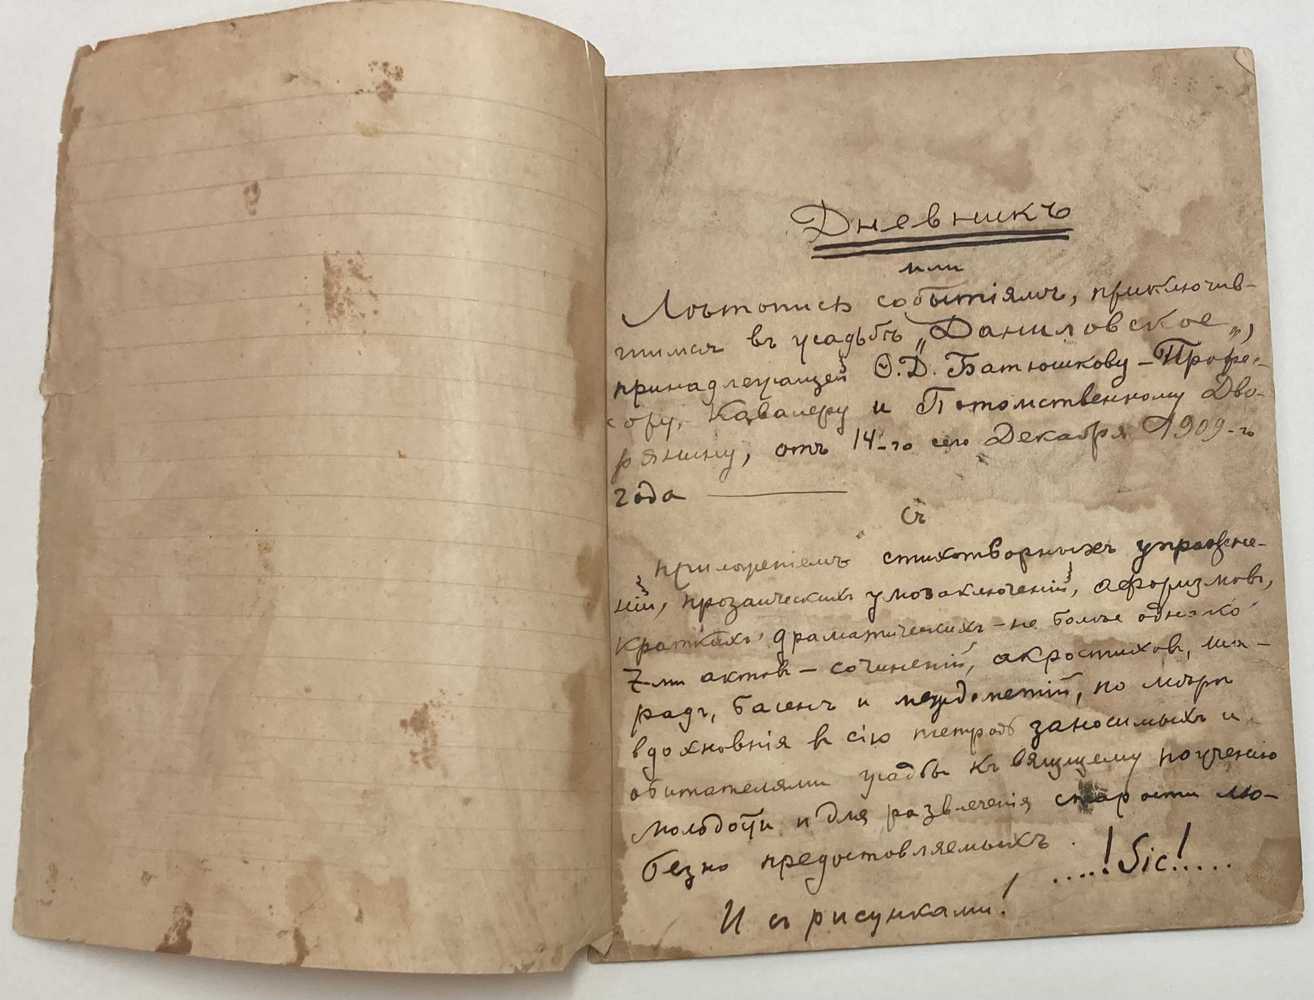 Дневникъ
или
Лѣтопись событіямъ, приключив-
шимся въ усадьбѣ „Даниловское„,
принадлежащей Ѳ. Д. Батюшкову – Профе-
сору, Кавалеру и Потомственному Дво-
рянину, отъ 14-го сего Декабря 1909-го
года
Съ
приложеніемъ стихотворныхъ упражне-
ній, прозаическихъ умозаключеній, афоризмовъ,
краткихъ драматическихъ – не болѣе однако
7-ми актовъ – сочиненій, акростиховъ, ша-
радъ, басенъ и междометій, по мѣрѣ
вдохновнія в сію тетрадь заносимыхъ и
обитателями усадьбы къ вящщему поученію
молодости и для развлеченія старости лю-
безно предоставляемыхъ.
....!Sic!....
И съ рисунками!